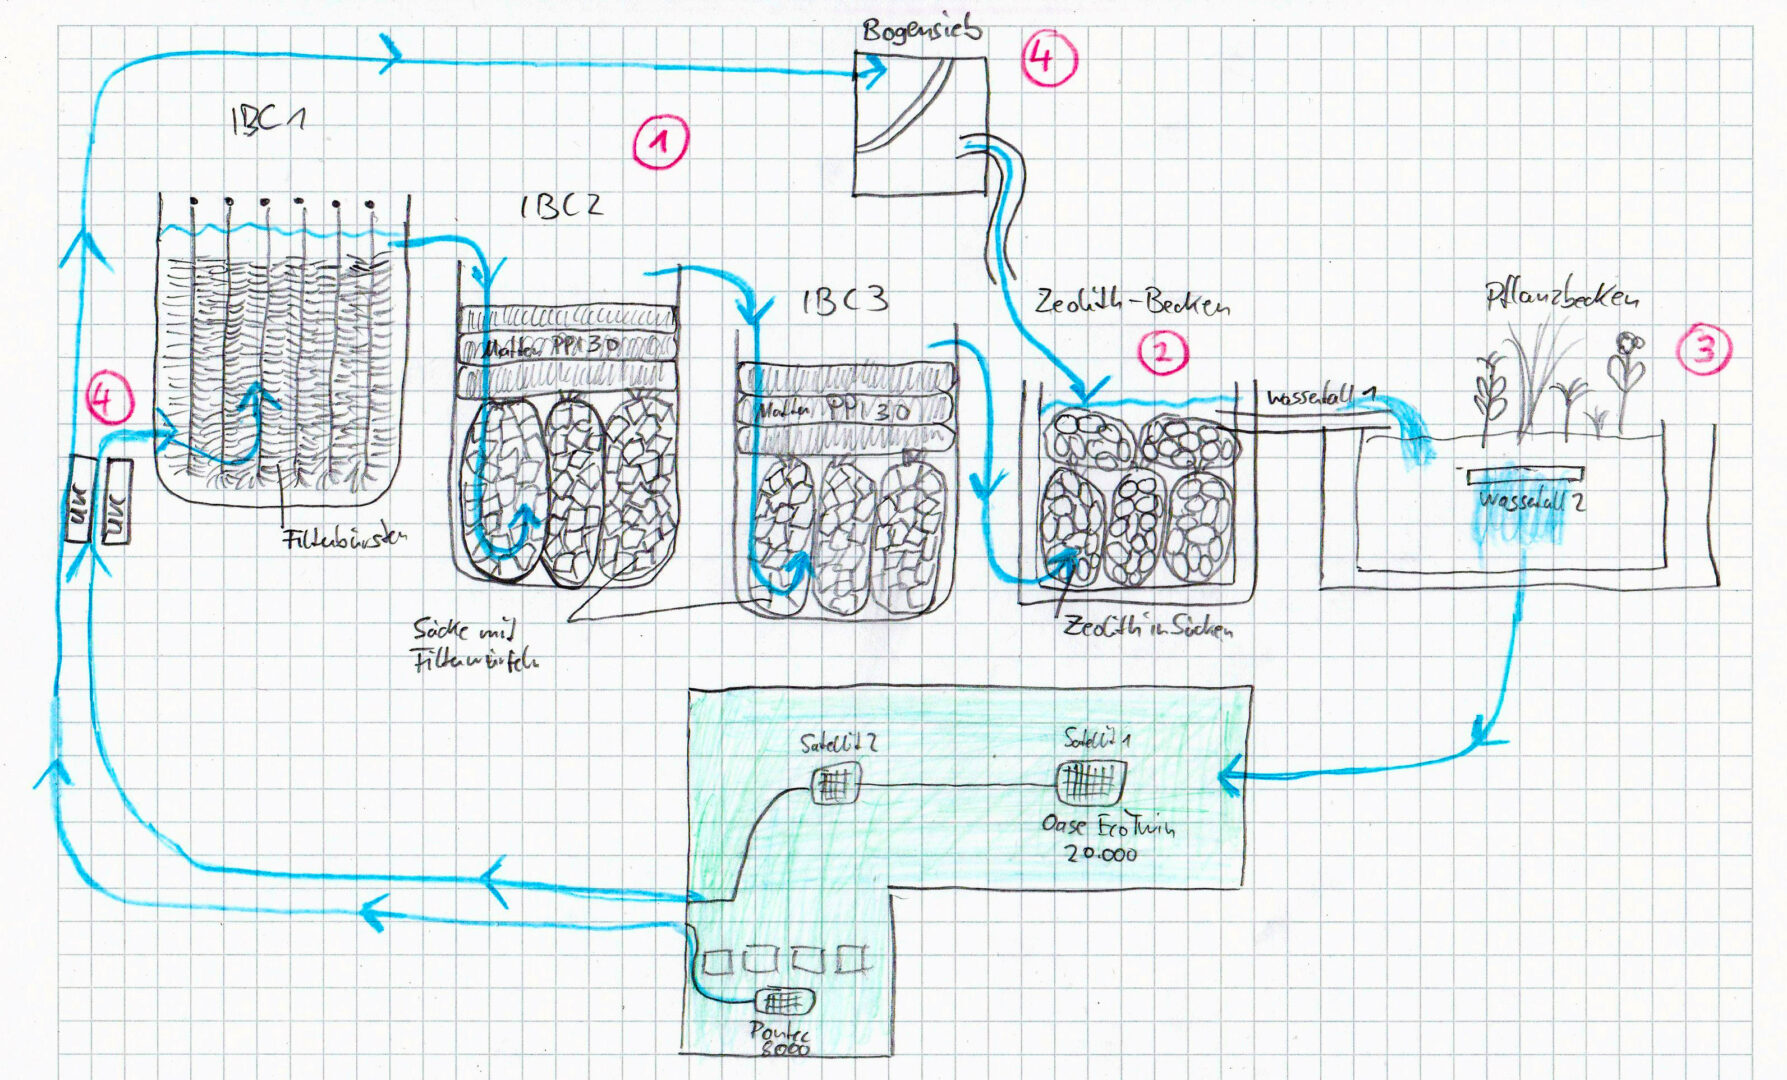 Bogensieb
4
IBC1
1
IBC2
IBC3
Zeolith-Becken
2
Pflanzbecken
3
Matten PPI 30
Matten PPI 30
Wasserfall 1
Wasserfall 2
4
UVC
UVC
Filterbürsten
Säcke mit
Filterwürfeln
Zeolith in Säcken
Satellit 2
Satellit 1
Oase EcoTwin
20.000
Pontec
8000